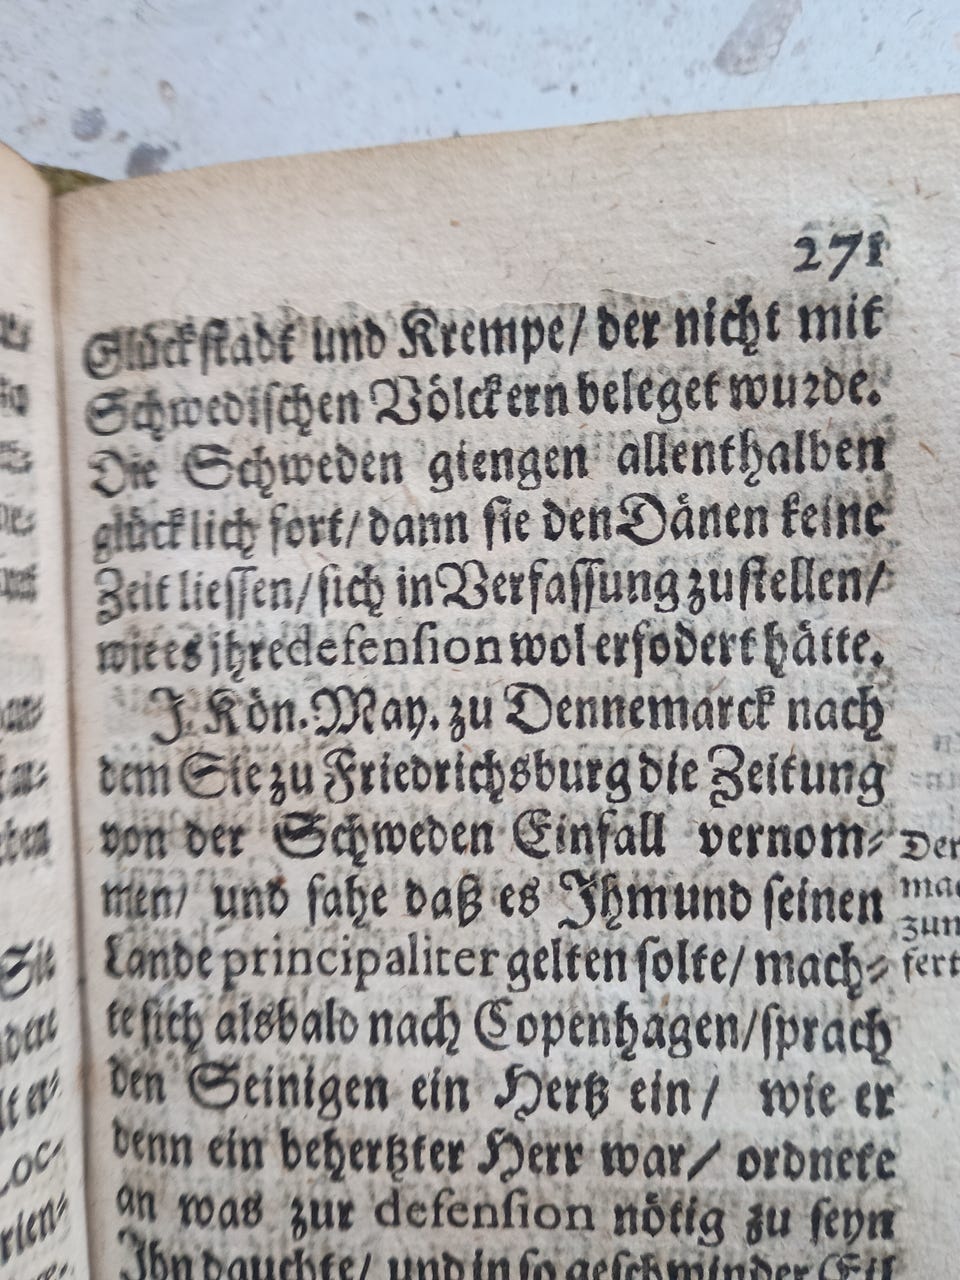 271
Glückstadt und Krempe/ der nicht mit
Schwedischen Völckern beleget wurde.
Die Schweden giengen allenthalben
glücklich fort/ dann sie den Dänen keine
Zeit liessen/ sich in Verfassung zustellen/
wie es jhre defension wol erfodert hätte.
J. Kön. May. zu Dennemarck nach
dem Sie zu Friedrichsburg die Zeitung
von der Schweden Einfall vernom-
men/ und sahe daß es Ihm und seinen
Lande principaliter gelten solte/ mach-
te sich alsbald nach Copenhagen/ sprach
den Seinigen ein Hertz ein/ wie er
denn ein behertzter Herr war/ ordnete
an was zur defension nötig zu seyn
Ihn dauchte/ und in so geschwinder Eil
Der
zum
fert
Sie